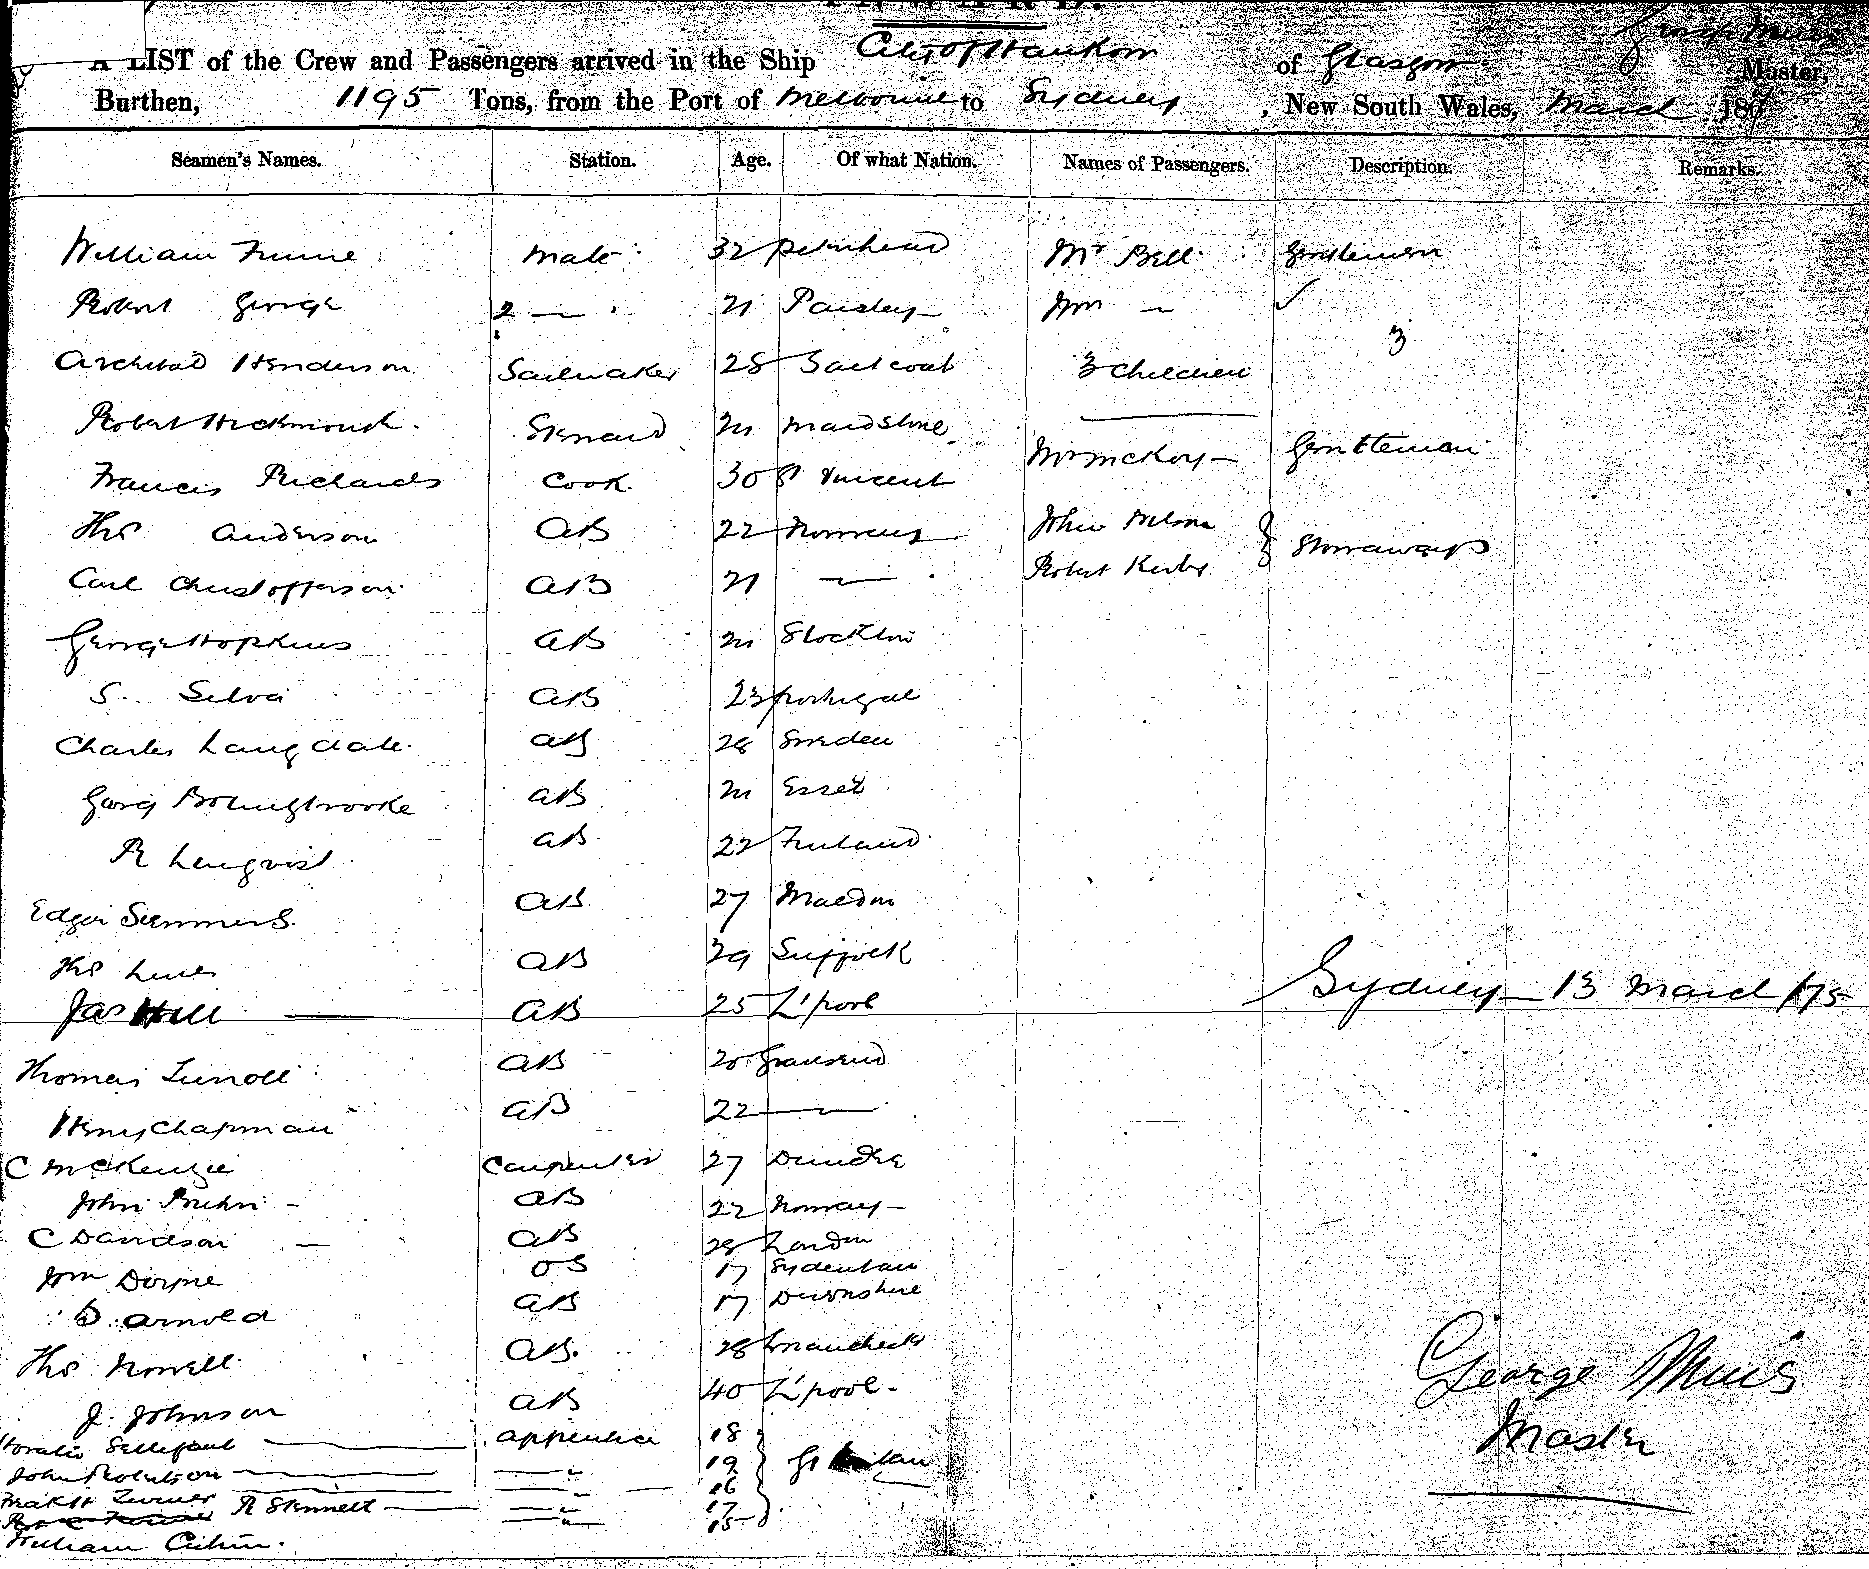 A LIST of the Crew and Passengers arrived in the Ship City of Hankow of Glasgow George Muir Master,
Burthen, 1195 Tons, from the Port of Melbourne to Sydney, New South Wales, March 187
Seamen's Names. Station. Age. Of what Nation. Names of Passengers. Description. Remarks.
William Mate 32 Peterhead Mr Bell Gentleman
Robert George 2 — 21 Paisley Mrs — ✓
3
Archibald Henderson Sailmaker 28 Saltcoat 3 Children
Robert Hickmouth Steward 21 Maidstone
Mr McKoy Gentleman
Francis Richards Cook 30 St Vincent
Ths Anderson AB 22 Norway John Stowaways
Carl Christofferson AB 21 — Robert Kerby
George Hopkins AB 21 Stockton
S. Selva AB 23 Portugal
Charles Langdale AB 28 Sweden
Georg Bolingbrooke AB 21 Essex
R Lengvist AB 22 Finland
Edgar Summers AB 27 Maldon
Ths Lines AB 29 Suffolk
Sydney 13 March /75
Jas Hill AB 25 L'pool
Thomas AB 20 Gravesend
Henry Chapman AB 22 —
C McKenzie Carpenter 27 Dundee
John AB 22 Norway
C Davidson AB 28 London
Wm Dorne OS 17 Sydenham
B. Arnold AB 17 Devonshire
Ths Nowell AB. 28 Manchester
George Muir
J. Johnson AB 40 L'pool
Master
Horatio Apprentice 18
John Robertson — 19 Gt Britain
Turner — 16
R Stennett — 17
William — 15